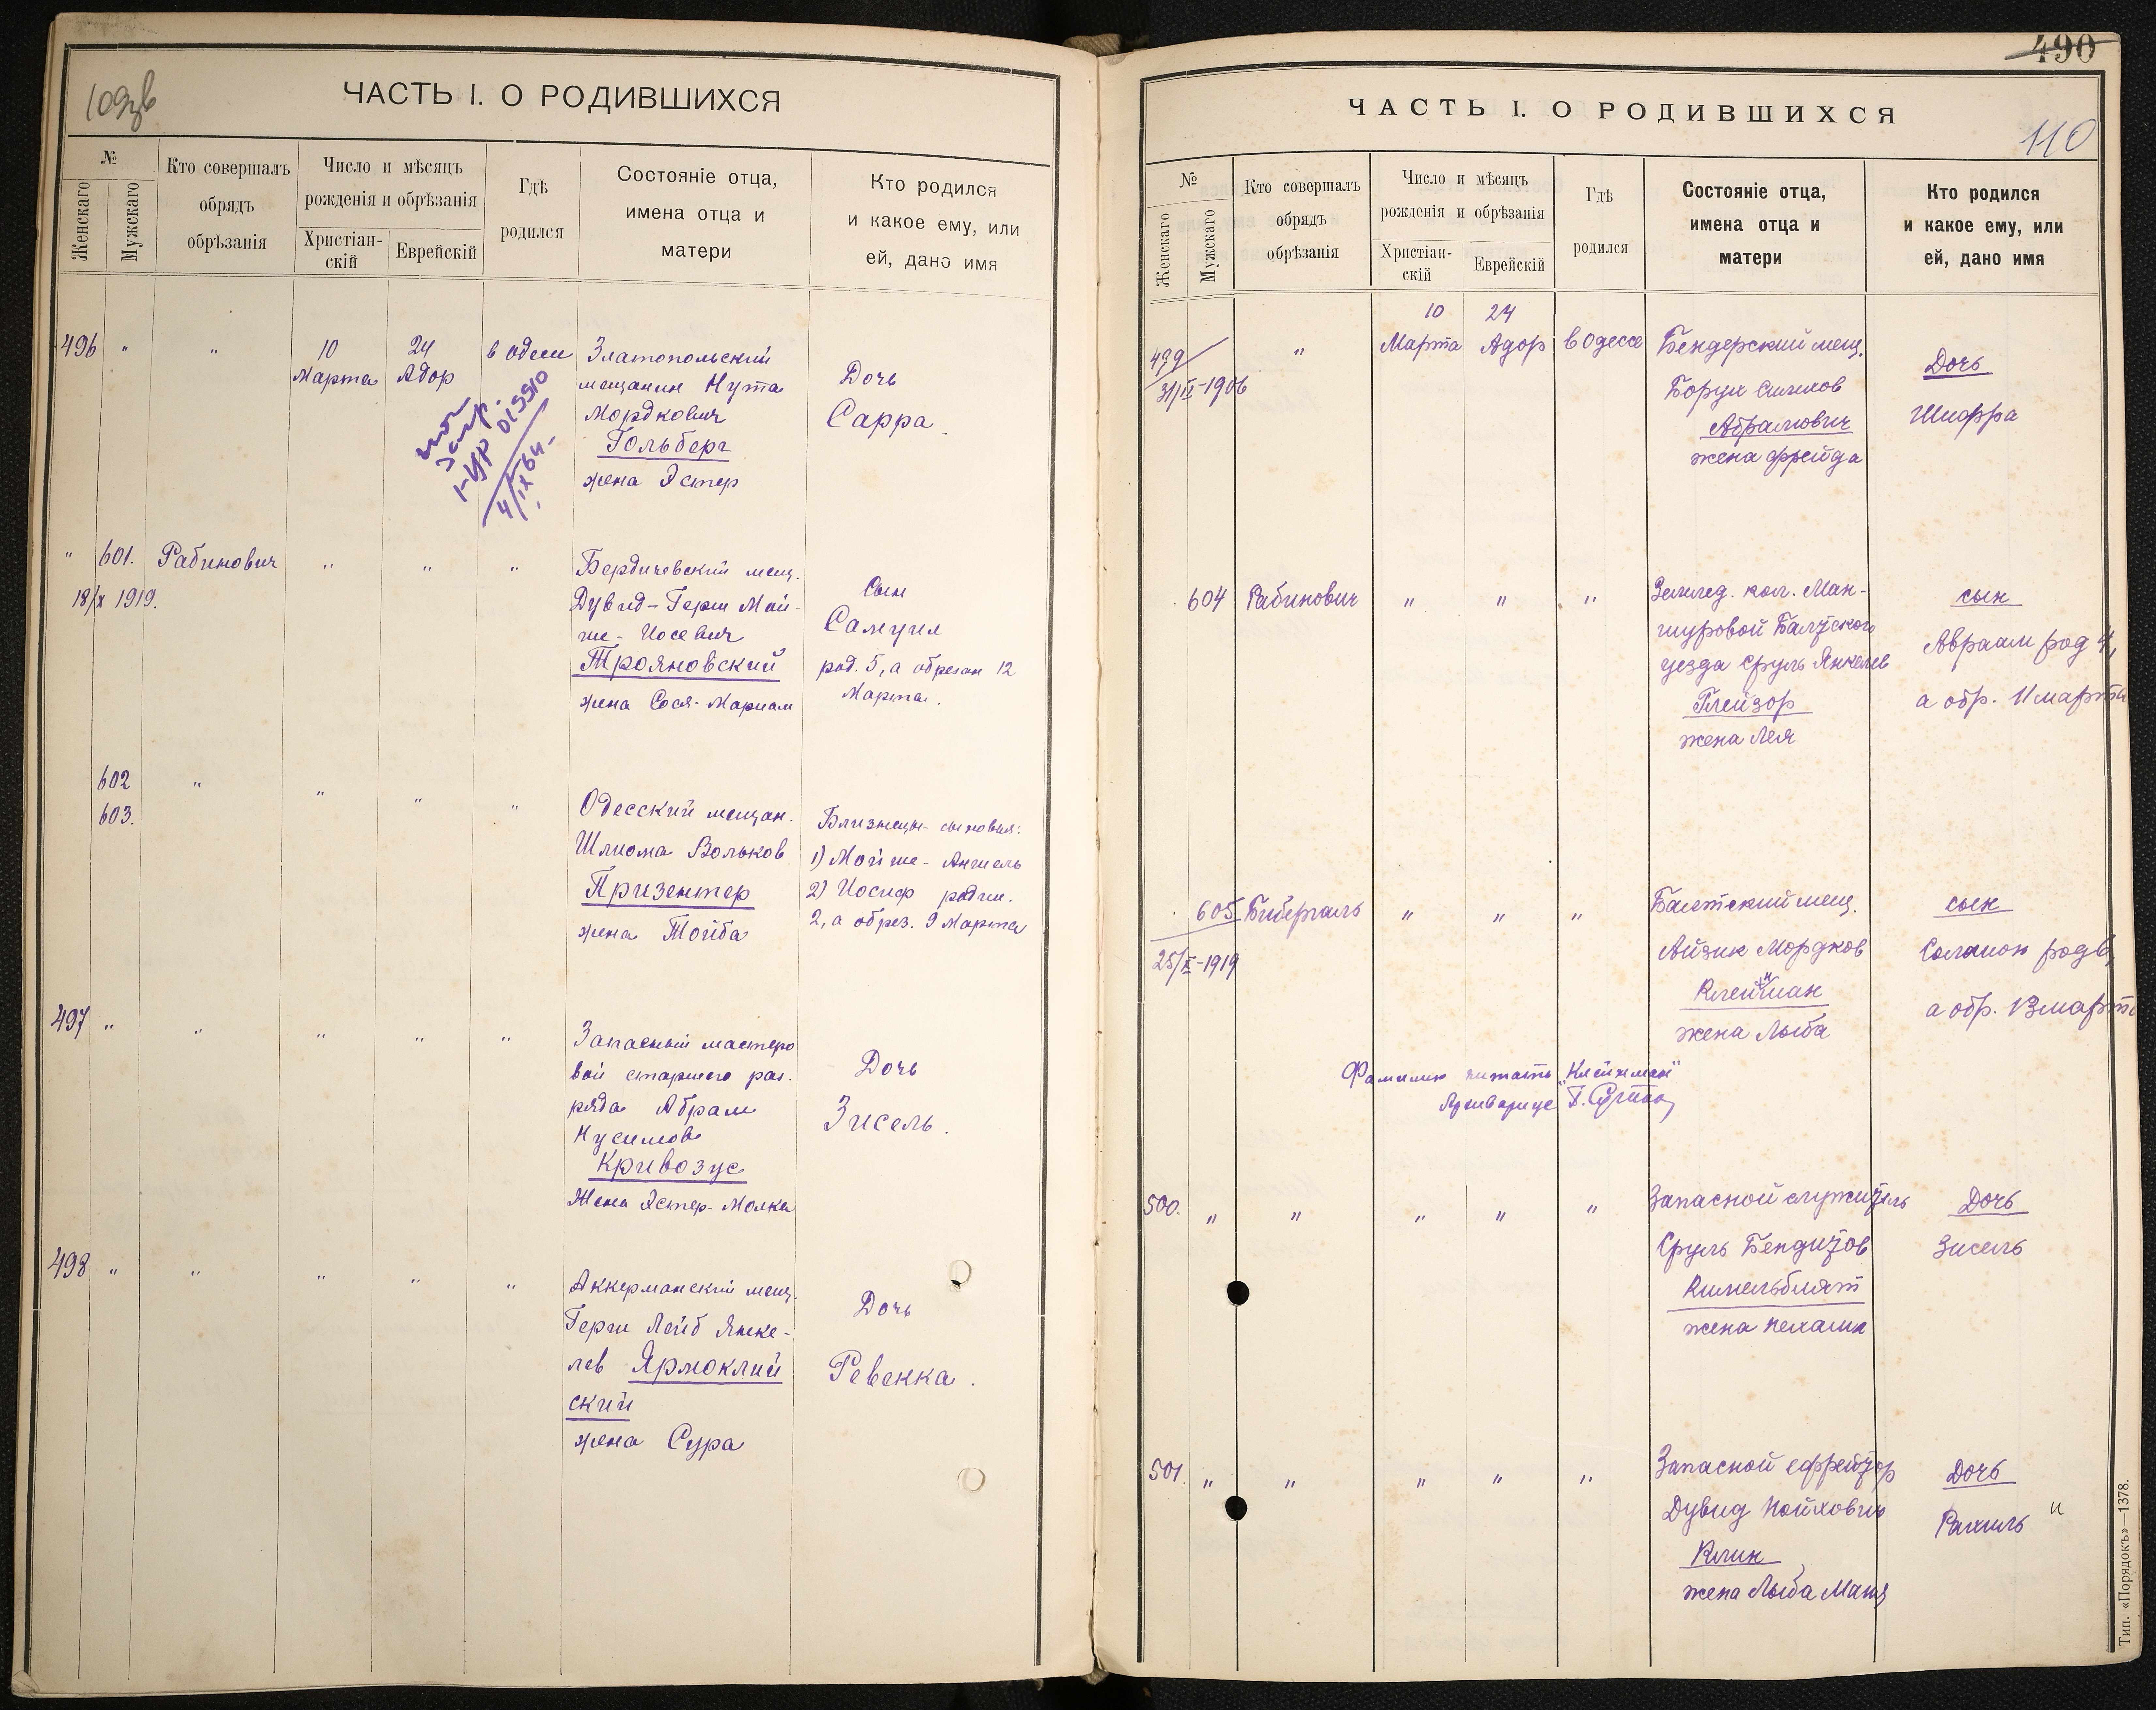 109об
ЧАСТЬ I. О РОДИВШИХСЯ
№
Женскаго
Мужскаго
Кто совершалъ
обрядъ
обрѣзанія
Число и мѣсяцъ
рожденія и обрѣзанія
Христіан-
скій
Еврейскій
Гдѣ
родился
Состояніе отца,
имена отца и
матери
Кто родился
и какое ему, или
ей, дано имя
496 " "
10
Марта
24
Адор
в Одессе
Златопольский
мещанин Нута
Мордкович
Гольберг
жена Эстер
Дочь
Сарра
4/IX 64
" 601. Рабинович " " "
18/X 1919.
Бердичевский мещ.
Дувид-Герш Мой-
ше-Иосевич
Трояновский
жена Сося-Мариам
Сын
Самуил
род. 5, а обрезан 12
Марта.
602
603.
" " " "
Одесский мещан.
Шлиома Вольков
Призентер
жена Тойба
Близнецы-сыновья:
1) Мойше-Аншель
2) Иосиф родил.
2, а обрез. 9 Марта
497 " " " " "
Запасный мастеро
вой старшего раз.
ряда Абрам
Нусимов
Кривозус
Жена Эстер-Малка
Дочь
Зисель.
498 " " " " "
Аккерманский мещ.
Герш Лейб Янке-
лев Ярмоклий
ский
жена Сура
Дочь
Ревекка.
490
ЧАСТЬ I. О РОДИВШИХСЯ
110
№
Женскаго
Мужскаго
Кто совершалъ
обрядъ
обрѣзанія
Число и мѣсяцъ
рожденія и обрѣзанія
Христіан-
скій
Еврейскій
Гдѣ
родился
Состояніе отца,
имена отца и
матери
Кто родился
и какое ему, или
ей, дано имя
499
"
10
Марта
24
Адор
в Одессе
Бендерский мещ.
Борух Симхов
Абрамович
жена Фрейда
Дочь
Шифра
604 Рабинович " " "
Землед. кол. Ман-
зуровой Балтского
уезда Сруль Янкелев
Глейзор
жена Лея
сын
Авраам род 4,
а обр. 11 марта
605 Бибергаль " " "
25/X-1919
Балтский мещ.
Айзик Мордков
Клейнман
жена Лыба
сын
Соломон род 6,
а обр. 13 марта
Фамилию читать "Клейнман"
500. " " " " "
Запасной служитель
Сруль Бендитов
Кимельблят
жена Нехама
Дочь
Зисель
501. " " " " "
Запасной ефрейтор
Дувид Пойхович
Клин
жена Лыба Маня
Дочь
Рахиль
Тип. «Порядокъ»—1378.